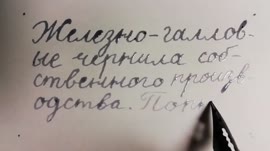 Железно-галлов-
ые чернила соб-
ственного произв-
одства. Попр